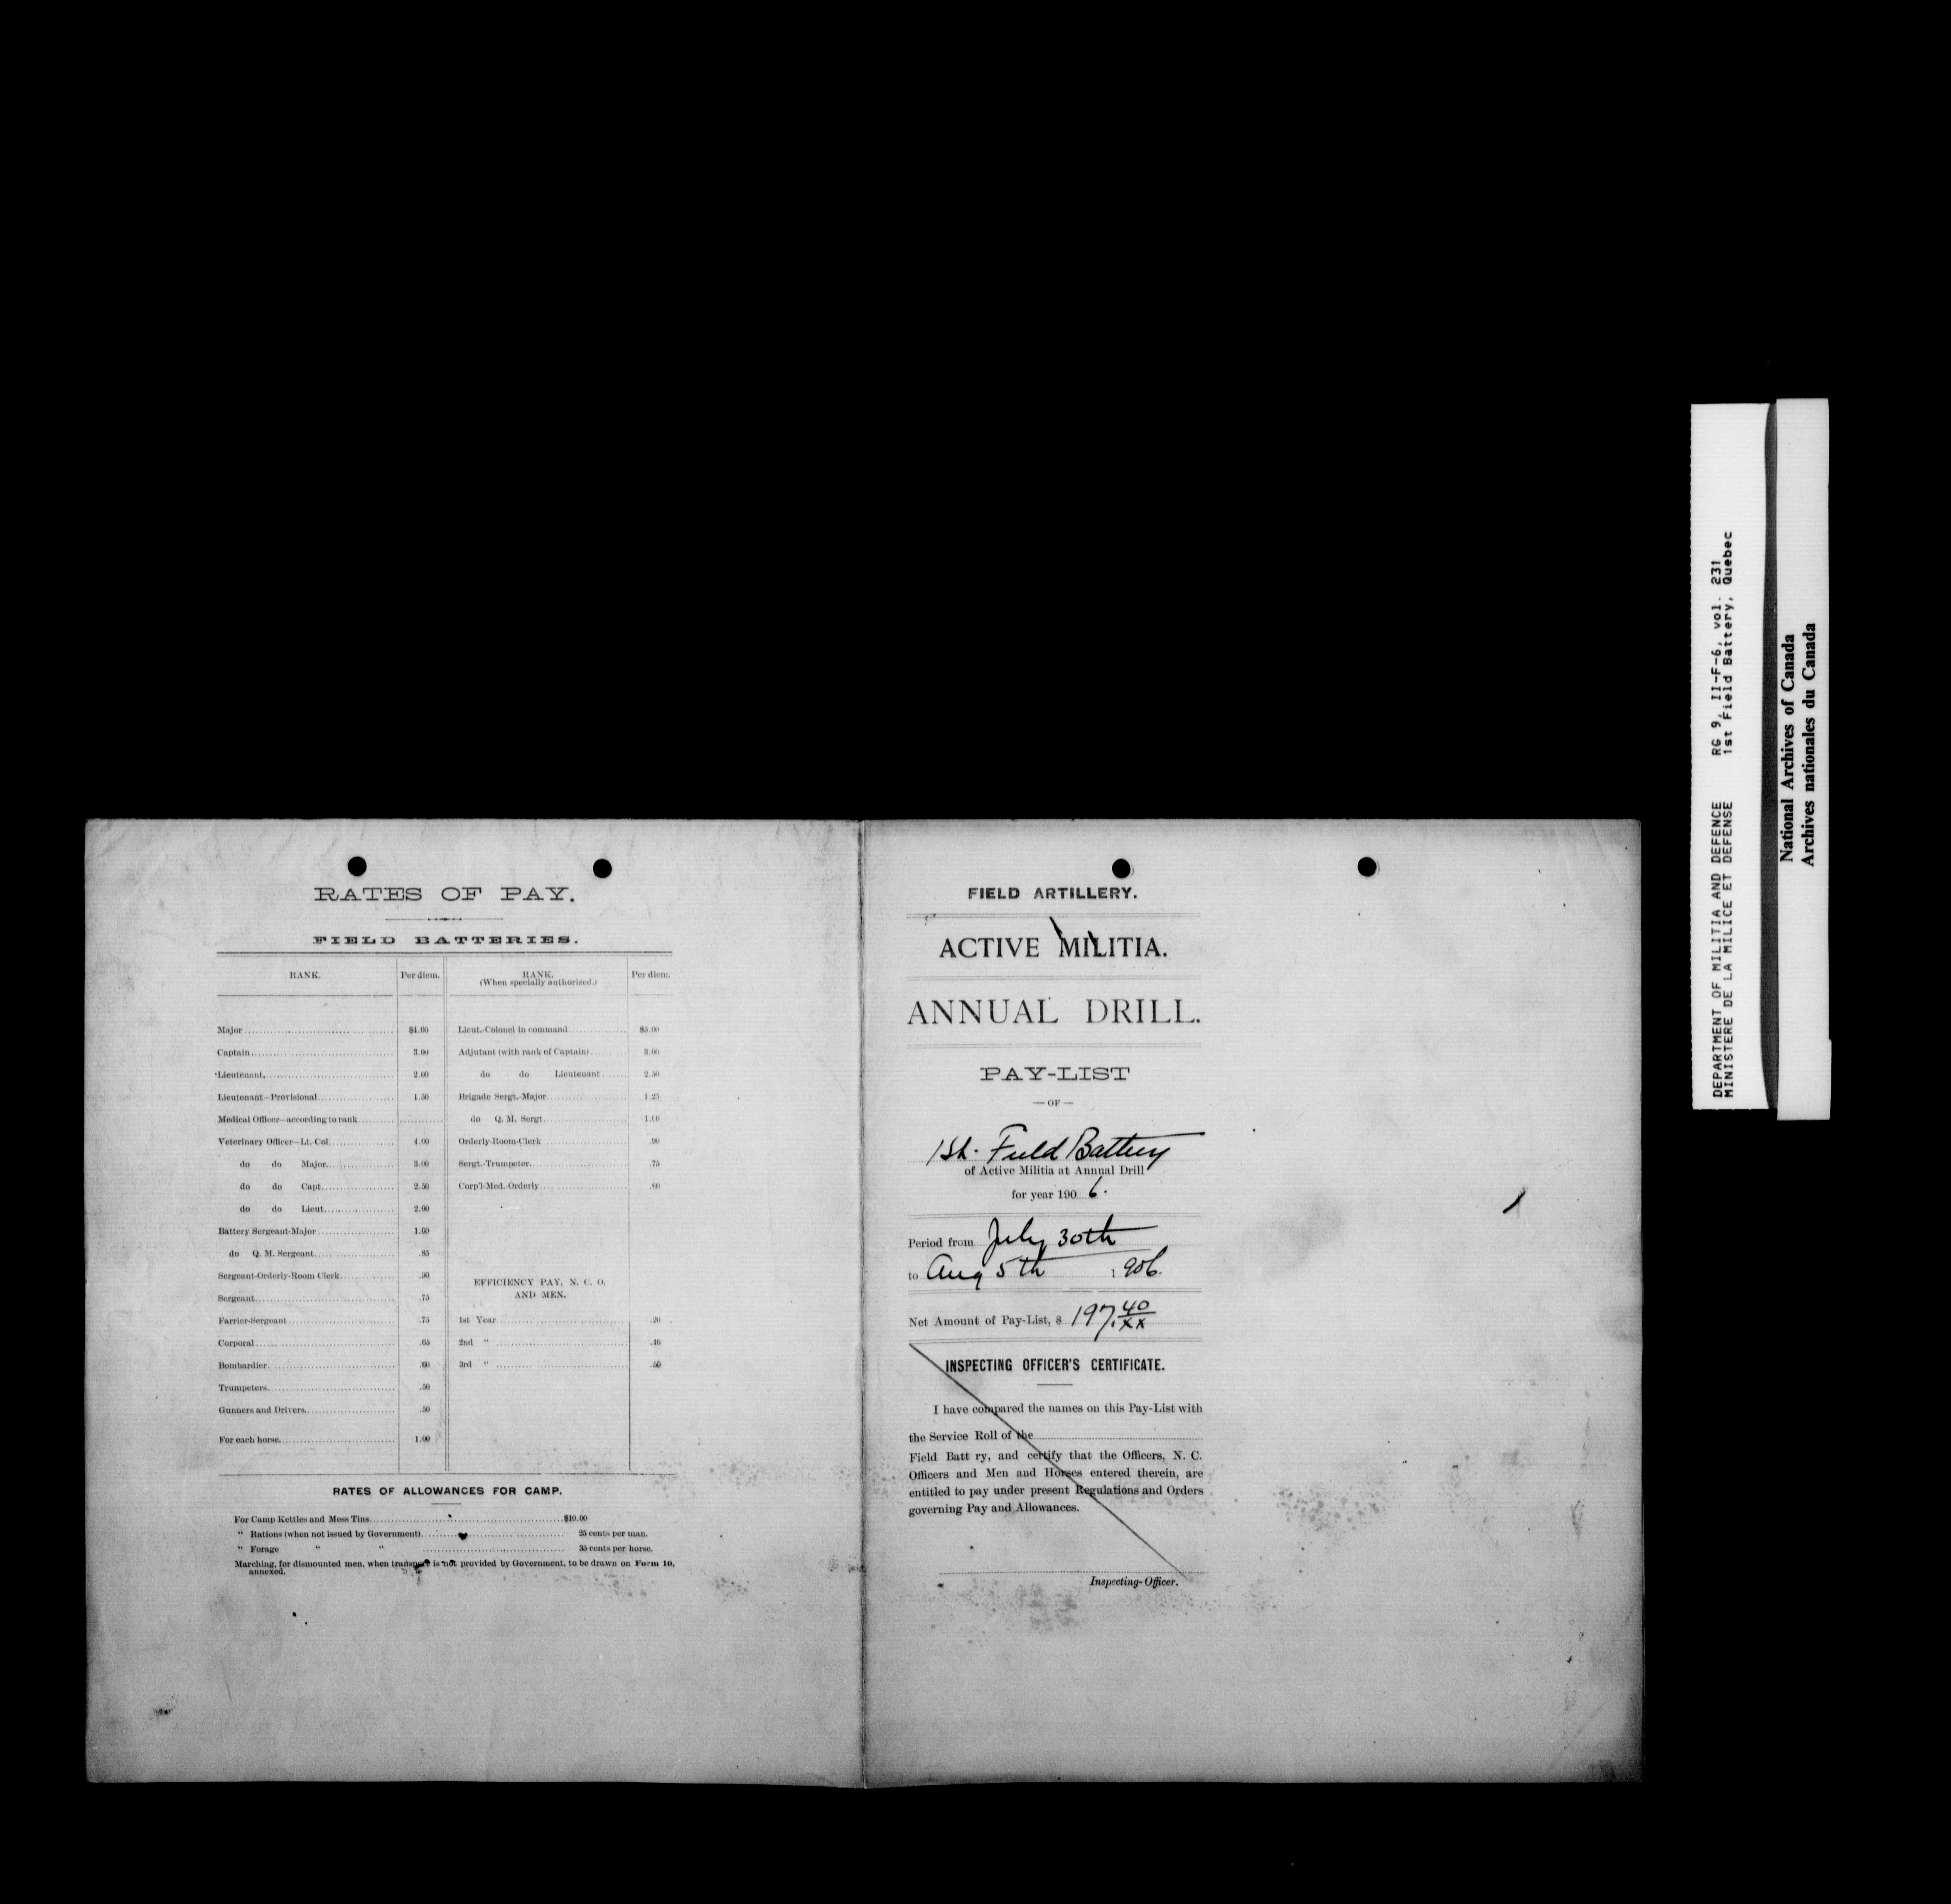 RATES OF PAY.
FIELD BATTERIES.
RANK. Per diem. RANK. (When specially authorized.) Per diem.
Major $4.00 Lieut.-Colonel in command $5.00
Captain 3.00 Adjutant (with rank of Captain) 3.00
*Lieutenant. 2.00 do do Lieutenant 2.50
Lieutenant—Provisional 1.50 Brigade Sergt.-Major 1.25
Medical Officer—according to rank do Q. M. Sergt. 1.00
Veterinary Officer—Lt. Col. 4.00 Orderly-Room-Clerk .90
do do Major. 3.00 Sergt.-Trumpeter. .75
do do Capt. 2.50 Corp'l-Med.-Orderly .60
do do Lieut. 2.00
Battery Sergeant-Major 1.00
do Q. M. Sergeant .85
Sergeant-Orderly-Room Clerk .90
Sergeant. .75
Farrier-Sergeant .75
Corporal .65
Bombardier .60
Trumpeters .50
Gunners and Drivers. .50
For each horse. 1.00
EFFICIENCY PAY. N. C. O.
AND MEN.
1st Year .20
2nd " .40
3rd " .50
RATES OF ALLOWANCES FOR CAMP.
For Camp Kettles and Mess Tins $10.00
" Rations (when not issued by Government) 25 cents per man.
" Forage " " 35 cents per horse.
Marching, for dismounted men, when transport is not provided by Government, to be drawn on Form 10,
annexed.
FIELD ARTILLERY.
ACTIVE MILITIA.
ANNUAL DRILL.
PAY-LIST
— OF —
1st. Field Battery
of Active Militia at Annual Drill
for year 190 6.
Period from July 30th
to Aug 5th 1 906.
Net Amount of Pay-List, $ 197.40/xx
INSPECTING OFFICER'S CERTIFICATE.
I have compared the names on this Pay-List with
the Service Roll of the
Field Batt ry, and certify that the Officers, N. C.
Officers and Men and Horses entered therein, are
entitled to pay under present Regulations and Orders
governing Pay and Allowances.
Inspecting-Officer.
DEPARTMENT OF MILITIA AND DEFENCE RG 9, II-F-6, vol. 231
MINISTERE DE LA MILICE ET DEFENSE 1st Field Battery, Quebec
National Archives of Canada
Archives nationales du Canada